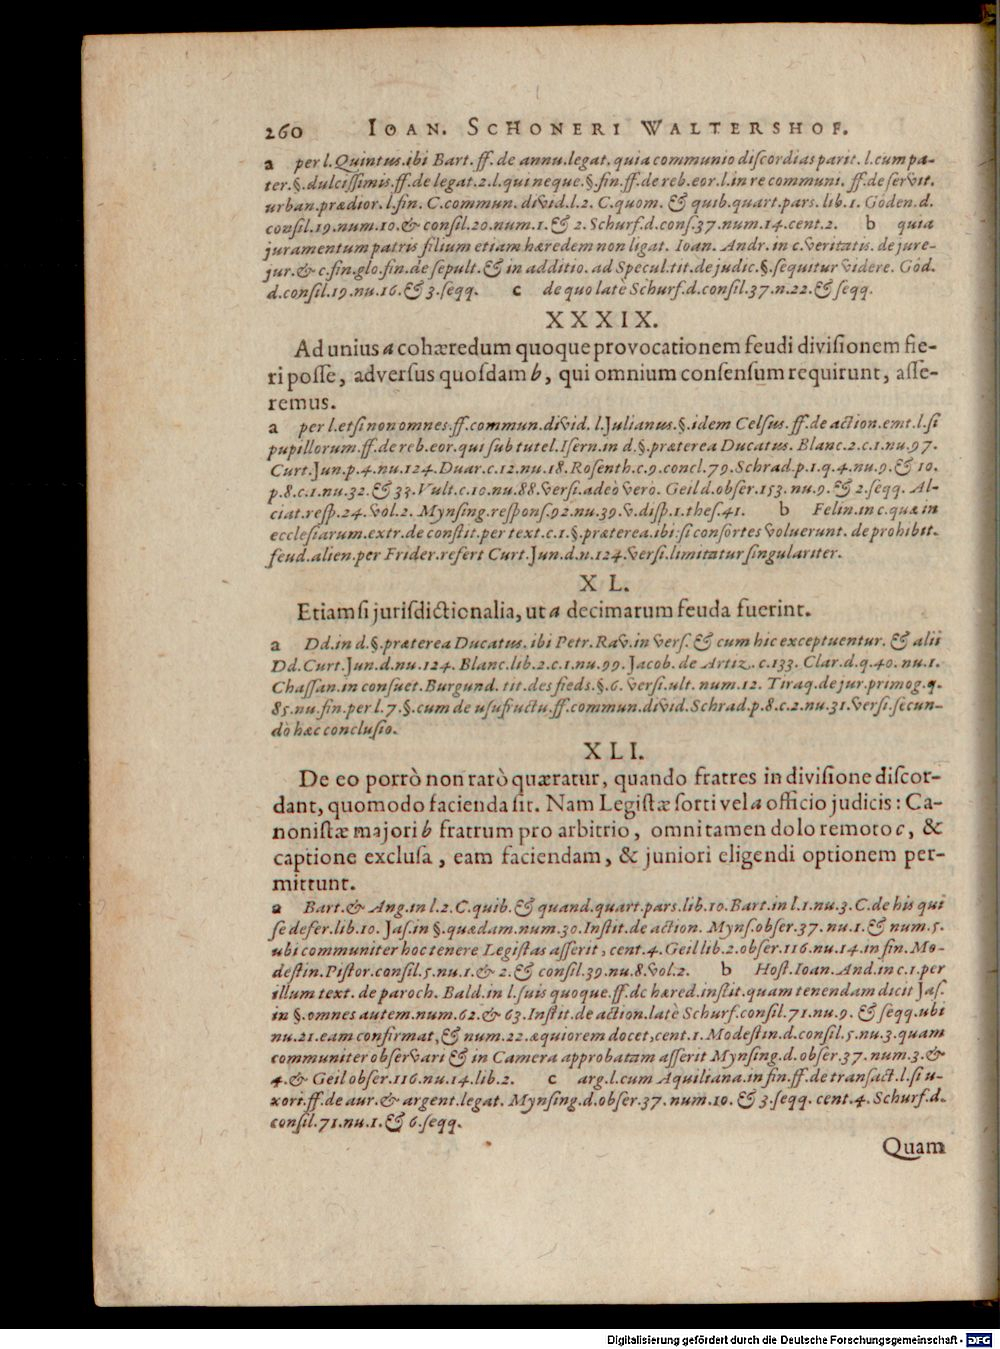 260 IOAN. SCHONERI WALTERSHOF.
a per l. Quintus. ibi Bart. ff. de annu. legat. quia communio discordias parit. l. cum pa-
ter. §. dulcissimis. ff. de legat. 2. l. qui neque. §. fin. ff. de reb. eor. l. in re communi. ff. de servit.
urban. prædior. l. fin. C. commun. divid. l. 2. C. quom. & quib. quart. pars. lib. 1. Goden. d.
consil. 19. num. 10. & consil. 20. num. 1. & 2. Schurf. d. cons. 37. num. 14. cent. 2. b quia
juramentum patris filium etiam hæredem non ligat. Ioan. Andr. in c. veritatis. de jure-
jur. & c. fin. glo. fin. de sepult. & in additio. ad Specul. tit. de judic. §. sequitur videre. God.
d. consil. 19. nu. 16. & 3. seqq. c de quo latè Schurf. d. consil. 37. n. 22. & seqq.
XXXIX.
Ad unius a cohæredum quoque provocationem feudi divisionem fie-
ri posse, adversus quosdam b, qui omnium consensum requirunt, asse-
remus.
a per l. etsi non omnes. ff. commun. divid. l. Julianus. §. idem Celsus. ff. de action. emt. l. si
pupillorum. ff. de reb. eor. qui sub tutel. Isern. in d. §. præterea Ducatus. Blanc. 2. c. 1. nu. 97.
Curt. Jun. p. 4. nu. 124. Duar. c. 12. nu. 18. Rosenth. c. 9. concl. 79. Schrad. p. 1. q. 4. nu. 9. & 10.
p. 8. c. 1. nu. 32. & 33. Vult. c. 10. nu. 88. versi. adeò verò. Geil d. obser. 153. nu. 9. & 2. seqq. Al-
ciat. resp. 24. vol. 2. Mynsing. respons. 92. nu. 39. V. disp. 1. thes. 41. b Felin. in c. quæ in
ecclesiarum. extr. de constit. per text. c. 1. §. præterea. ibi: si consortes voluerunt. de prohibit.
feud. alien. per Frider. refert Curt. Jun. d. n. 124. versi. limitatur singulariter.
XL.
Etiamsi jurisdictionalia, ut a decimarum feuda fuerint.
a Dd. in d. §. præterea Ducatus. ibi Petr. Rav. in vers. & cum hic exceptuentur. & alii
Dd. Curt. Jun. d. nu. 124. Blanc. lib. 2. c. 1. nu. 99. Jacob. de Artiz. c. 133. Clar. d. q. 40. nu. 1.
Chassan. in consuet. Burgund. tit. des fieds. §. 6. versi. ult. num. 12. Tiraq. de jur. primog. q.
85. nu. fin. per l. 7. §. cum de usufructu. ff. commun. divid. Schrad. p. 8. c. 2. nu. 31. versi. secun-
dò hæc conclusio.
XLI.
De eo porrò non rarò quæratur, quando fratres in divisione discor-
dant, quomodo facienda sit. Nam Legistæ sorti vel a officio judicis: Ca-
nonistæ majori b fratrum pro arbitrio, omni tamen dolo remoto c, &
captione exclusa, eam faciendam, & juniori eligendi optionem per-
mittunt.
a Bart. & Ang. in l. 2. C. quib. & quand. quart. pars. lib. 10. Bart. in l. 1. nu. 3. C. de his qui
se defer. lib. 10. Jas. in §. quædam. num. 30. Instit. de action. Myns. obser. 37. nu. 1. & num. 5.
ubi communiter hoc tenere Legistas asserit, cent. 4. Geil lib. 2. obser. 116. nu. 14. in fin. Mo-
destin. Pistor. consil. 5. nu. 1. & 2. & consil. 39. nu. 8. vol. 2. b Host. Ioan. And. in c. 1. per
illum text. de paroch. Bald. in l. suis quoque. ff. de hæred. instit. quam tenendam dicit Jas.
in §. omnes autem. num. 62. & 63. Instit. de action. latè Schurf. consil. 71. nu. 9. & seqq. ubi
nu. 21. eam confirmat, & num. 22. æquiorem docet, cent. 1. Modestin. d. consil. 5. nu. 3. quam
communiter observari & in Camera approbatam asserit Mynsing. d. obser. 37. num. 3. &
4. & Geil obser. 116. nu. 14. lib. 2. c arg. l. cum Aquiliana. in fin. ff. de transact. l. si u-
xori. ff. de aur. & argent. legat. Mynsing. d. obser. 37. num. 10. & 3. seqq. cent. 4. Schurf. d.
consil. 71. nu. 1. & 6. seqq.
Quam
Digitalisierung gefördert durch die Deutsche Forschungsgemeinschaft - DFG